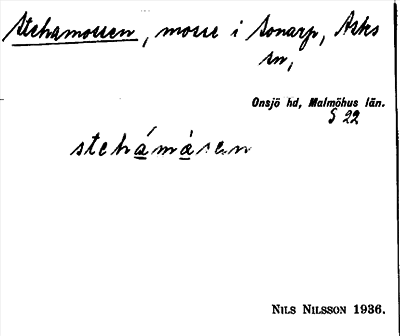 Stehamossen, mosse i Sonarp, Asks
sn,
Onsjö hd, Malmöhus län.
S 22
stehámåsen
NILS NILSSON 1936.